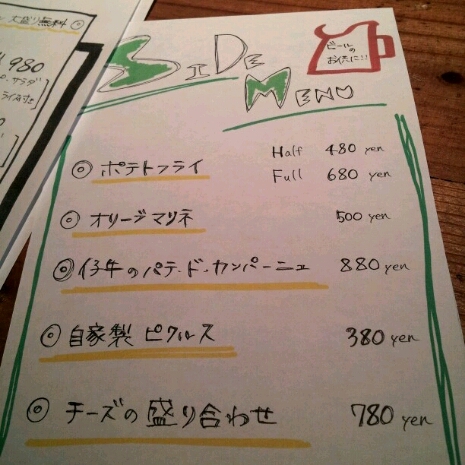 大盛り無料
980
SIDE
MENU
ビールの
お供に!!
◎ ポテトフライ Half 480 yen
Full 680 yen
◎ オリーブマリネ 500 yen
◎ 仔牛のパテ・ド・カンパーニュ 880 yen
◎ 自家製 ピクルス 380 yen
◎ チーズの盛り合わせ 780 yen